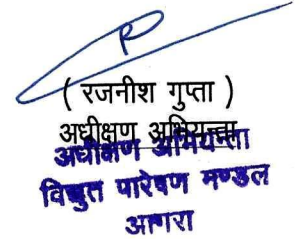 ( रजनीश गुप्ता )
अधीक्षण अभियन्ता
अधीक्षण अभियन्ता
विद्युत पारेषण मण्डल
आगरा